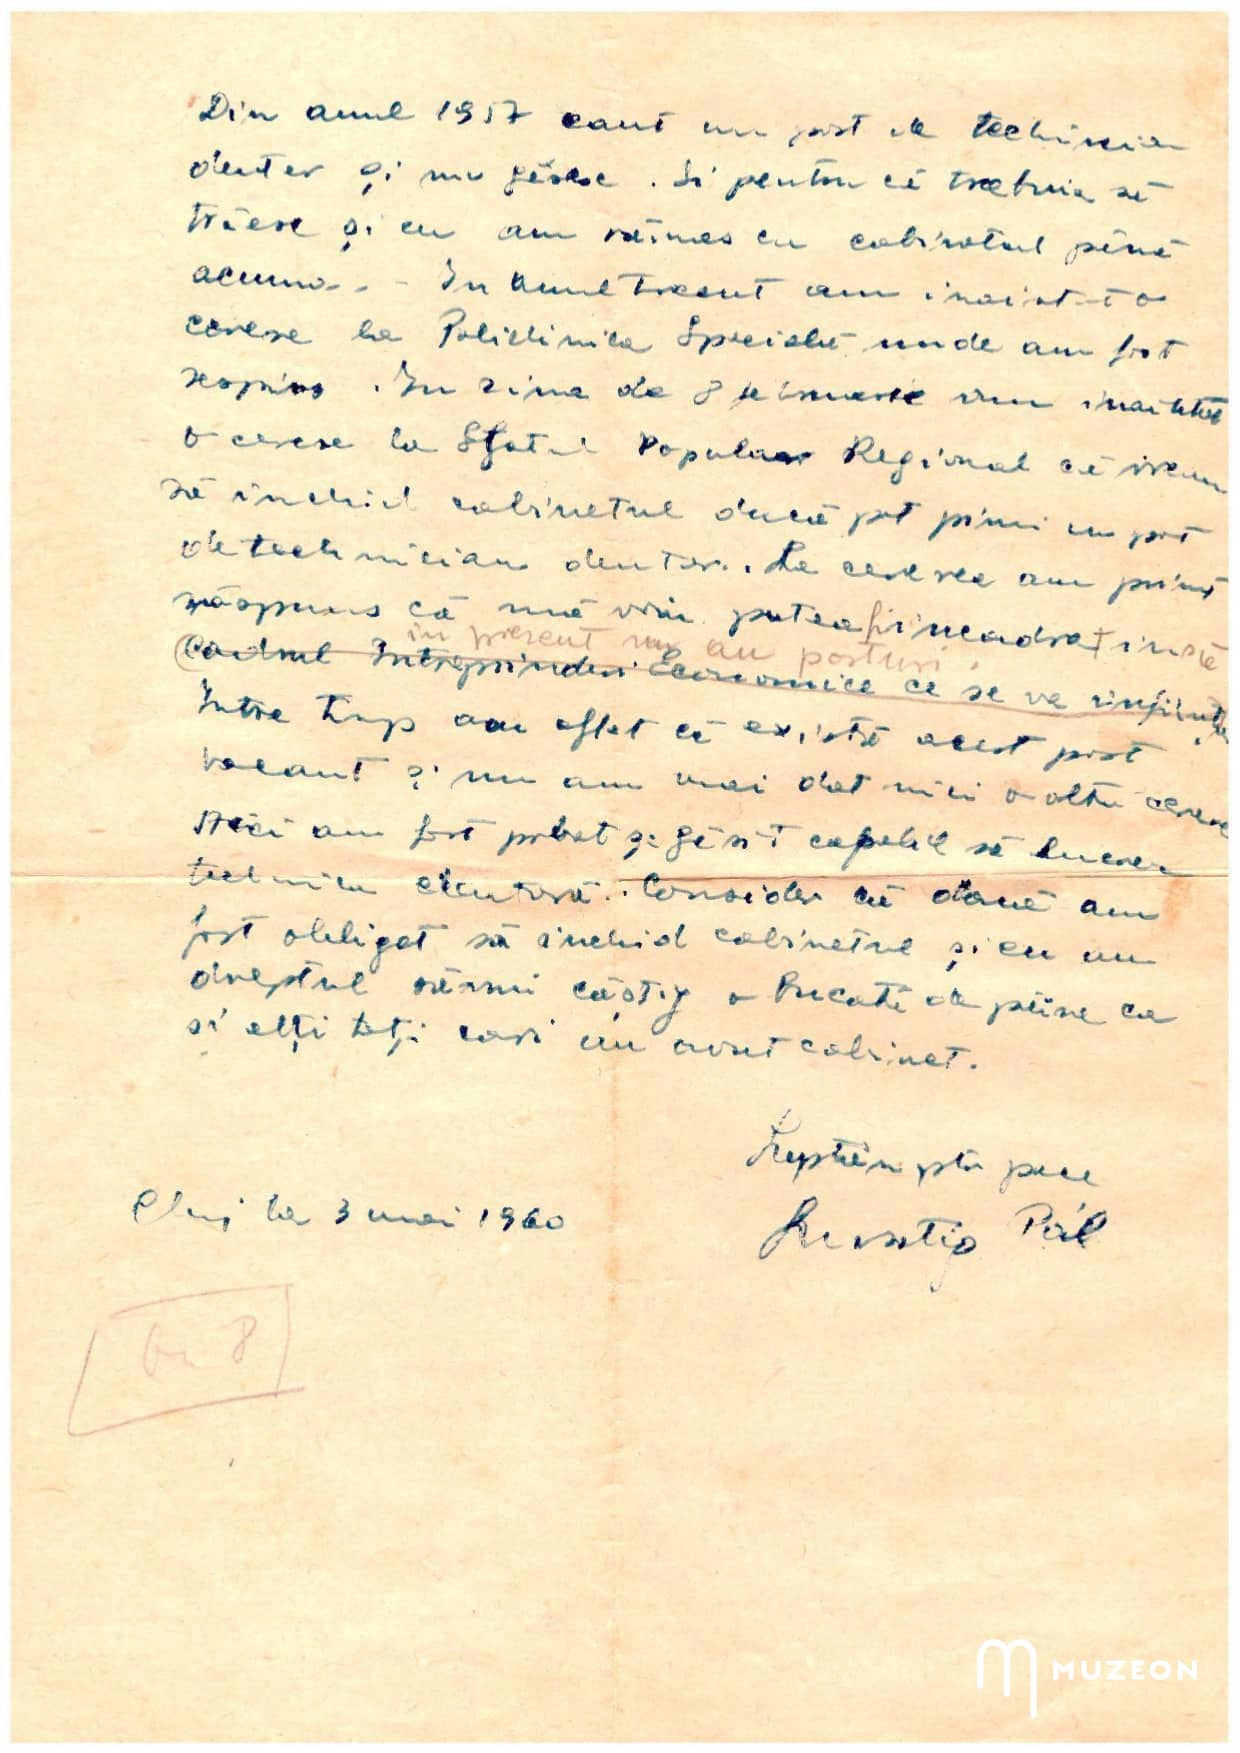 Din anul 1957 caut un post de technician
dentar și nu găsesc. Si pentru că trebuia să
trăesc și eu am rămas cu cabinetul pănă
acuma. - In anul trecut am inaintat o
cerere la Policlinica Specială unde am fost
respins. In ziua de 8 am inaintat
o cerere la Sfatul Popular Regional că vreau
să inchid cabinetul dacă pot primi un post
de technician dentar. La cererea am primit
răspuns că mă voiu putea fi incadrat in
in prezent nu au posturi.
Cadrul Intreprinderi Economice ce se va inființa
Intre timp am aflat că există acest post
vacant și nu am mai dat nici o altă cerere
Aici am fost probat și găsit capabil să lucrez
technica dentară. Consider că dacă am
fost obligat să inchid cabinetul și eu am
dreptul sămi căștig o bucată de păine ca
și alți toți cari au avut cabinet.
Luptăm ptr pace
Cluj la 3 mai 1960
Lusztig Pál
8
MUZEON